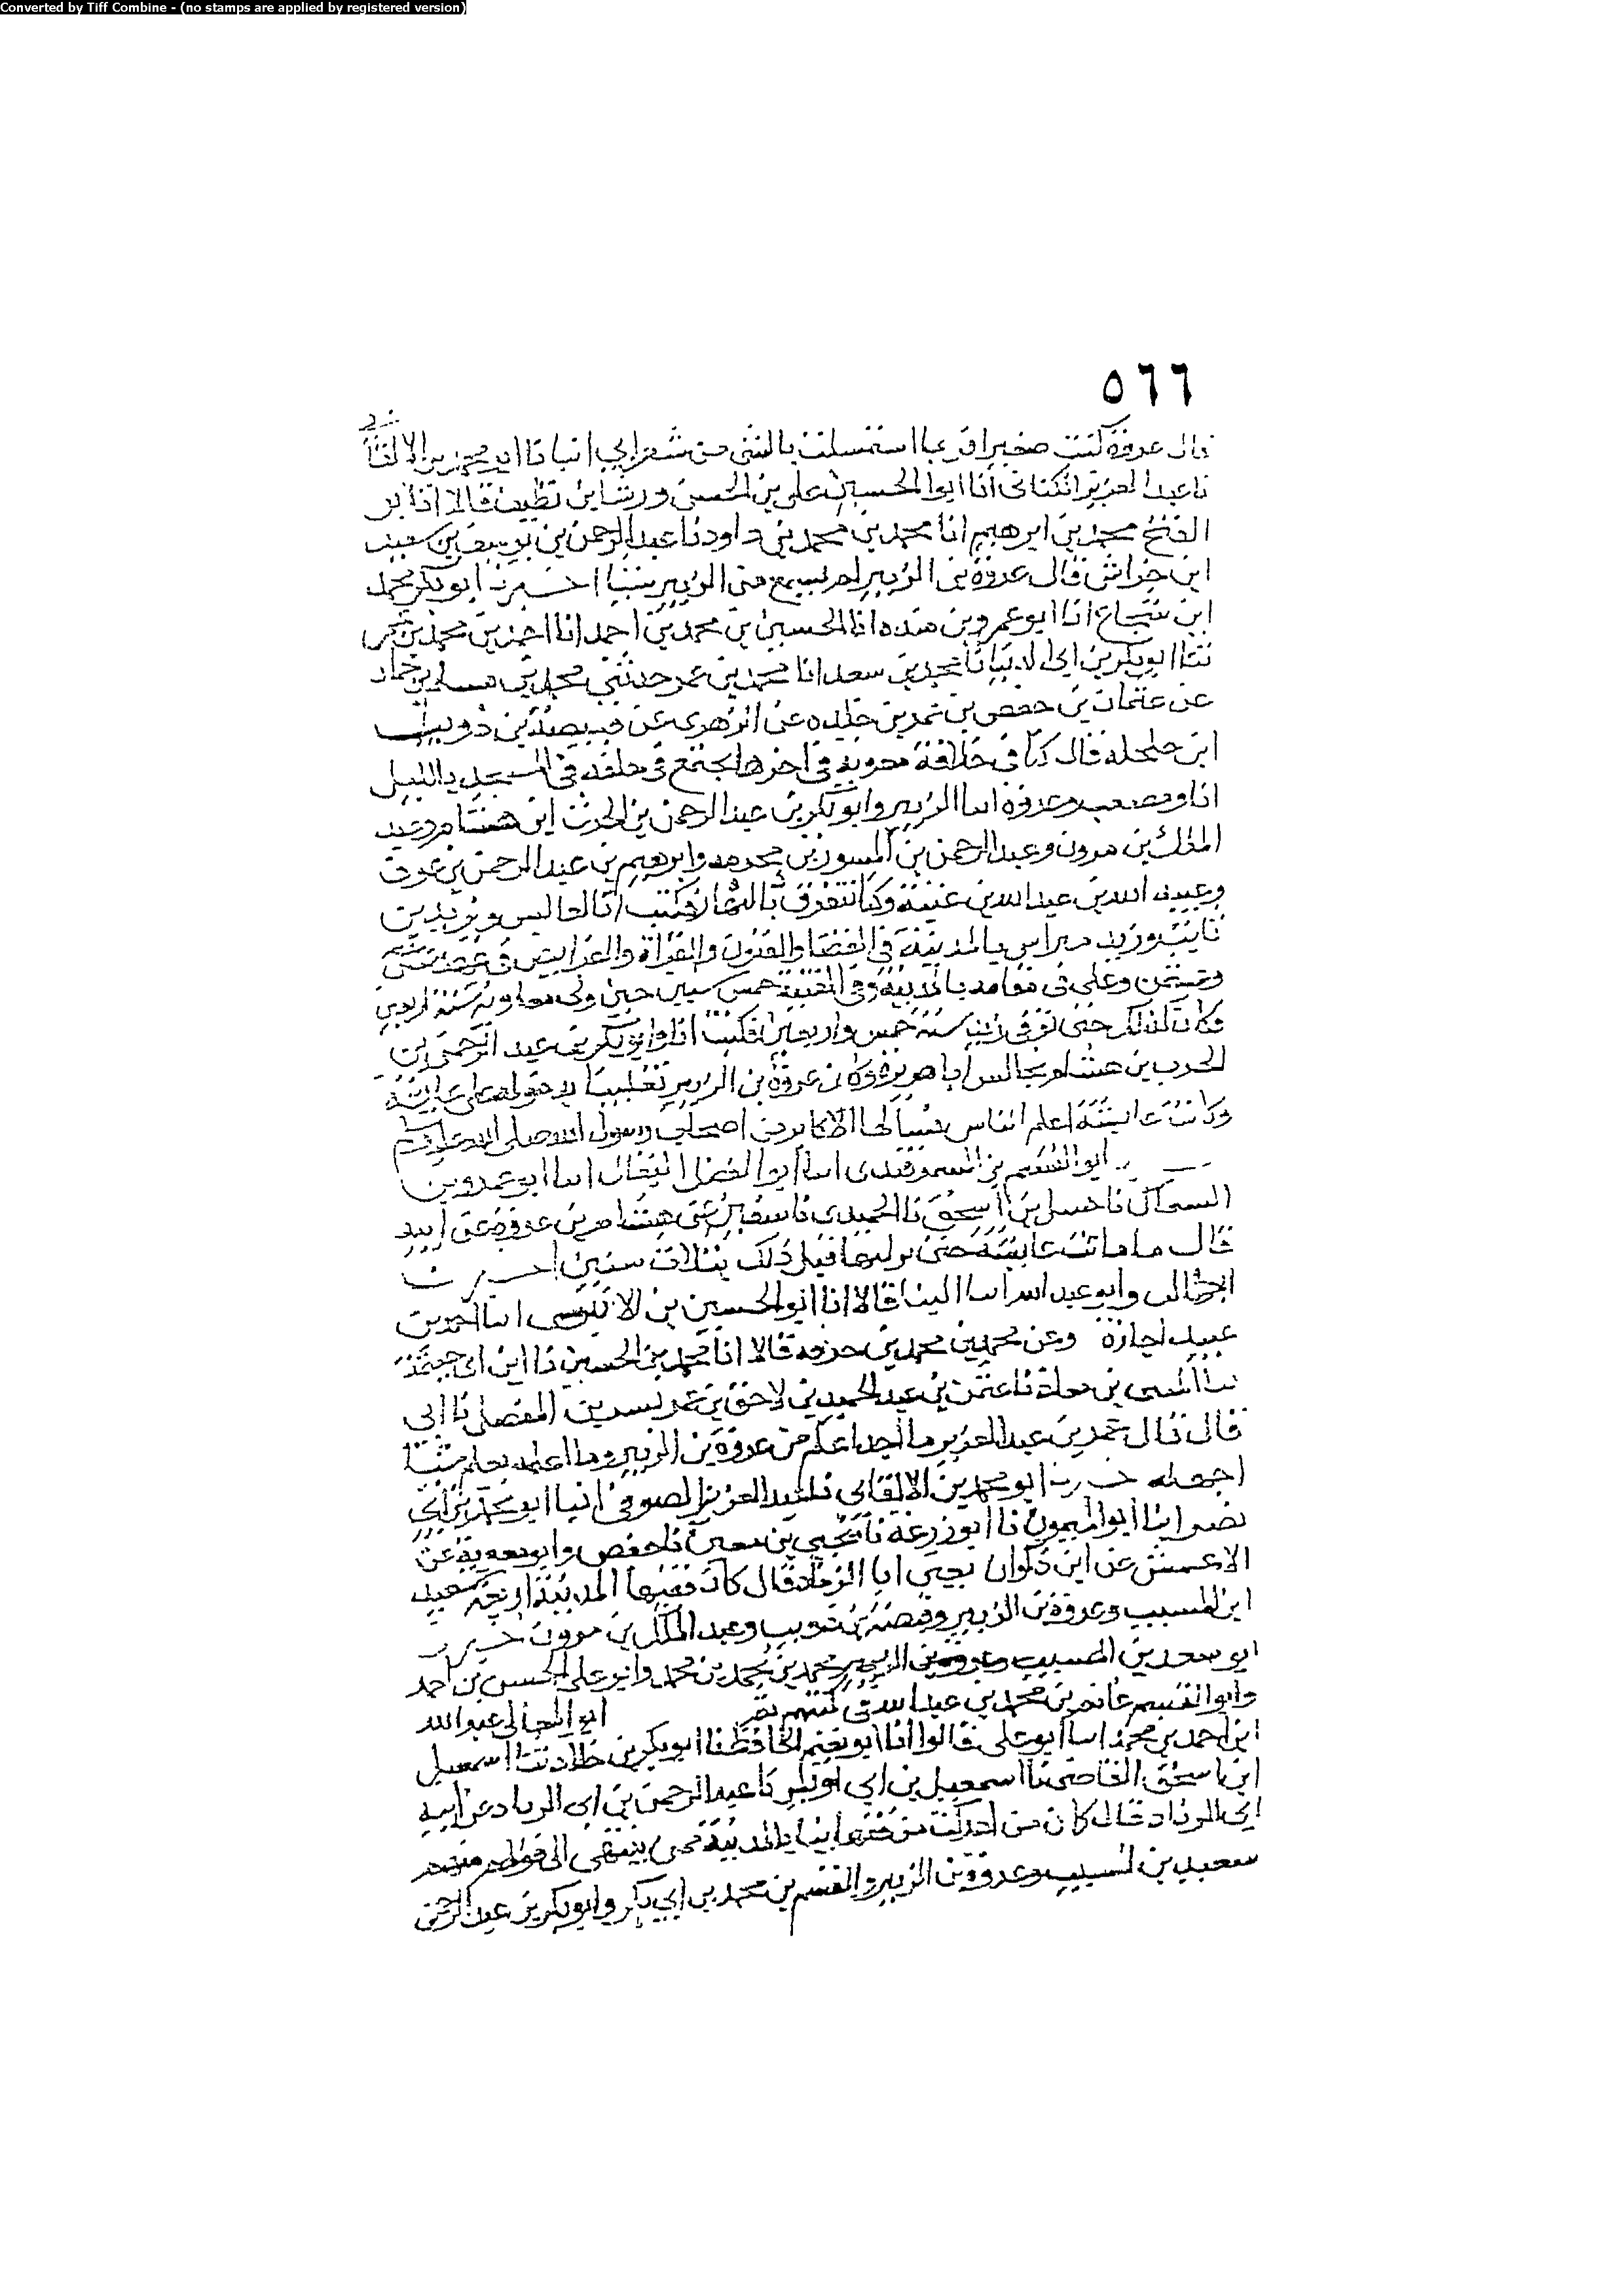 Converted by Tiff Combine - (no stamps are applied by registered version)
٥٦٦
قال عروة كنت صغيرا فربما استمسلت بالشى من شعر ابي انبانا ابو محمد بن الاكفانى
نا عبد العزيز الكتانى انا ابوا الحسين على بن الحسن ورشا بن نظيف قالا انا ابو
الفتح محمد بن ابرهيم انا محمد بن محمد بن داود نا عبد الرحمن بن يوسف بن سعيد
ابن خراش قال عروة بن الزبير لم يسمع من الزبير شيئا اخبرنا ابو بكر محمد
ابن شجاع انا ابو عمرو بن منده انا الحسين بن محمد بن احمد انا احمد بن محمد بن عمر
نا ابو بكر بن ابى الدنيا نا محمد بن سعد انا محمد بن عمر حدثني محمد بن مسلم بن جماز
عن عثمان بن حفص بن عمر بن خلده عن الزهرى عن قبيصة بن ذويب
ابن حلحلة قال كنا فى خلافة معوية فى اخرها نجتمع فى حلقه فى المسجد بالليل
انا ومصعب وعروة ابنا الزبير وابو بكر بن عبد الرحمن بن الحرث ابن هشام وعبد
الملك بن مرون وعبد الرحمن بن المسور بن مخرمه وابرهيم بن عبد الرحمن بن عوف
وعبيد الله بن عبد الله بن عتبة وكنا نتفرق بالنهار فكنت انا اجالس زيد بن
ثابت وزيد مراس بالمدينة فى القضا والفتوى والقراة والفرايض فى عهد عمر
وعثمن وعلى فى مقامه بالمدينة وفى خمس سنين حين ولى معاوية سنة اربعين
وكان كذلك حتى توفى زيد سنة خمس واربعين فكنت انا وابو بكر بن عبد الرحمن بن
الحرث بن هشام نجالس ابا هريرة وكان عروة بن الزبير يغلبنا بدخوله على عايشة
وكانت عايشة اعلم الناس يسالها الاكابر من اصحاب رسول الله صلى الله عليه وسلم
ابو القسم بن السمرقندى انا ابو الفضل البقال انا ابو عمرو بن
السماك نا حنبل بن اسحق نا الحميدى نا سفين عن هشام بن عروة عن ابيه
قال ما ماتت عايشة حتى تركتها قبل ذلك بثلاث سنين اخبرنا
ابو غالب وابو عبد الله ابنا البنا قالا انا ابو الحسين بن الابنوسى انا احمد بن
عبيد اجازة وعن محمد بن محمد بن خزفه قالا انا محمد بن الحسين نا ابن ابى خيثمة
نا عثمن بن عبد الحميد بن لاحق بن عم بشر بن المفضل نا ابى
قال قال عمر بن عبد العزيز ما احد اعلم من عروة بن الزبير وما اعلمه يعلم شيئا
اجهله خبرنا ابو محمد بن الاكفانى نا عبد العزيز الصوفى انبا ابو محمد بن ابى
نصر انا ابو الميمون نا ابو زرعة نا يحيى بن معين نا حفص وابو معوية عن
الاعمش عن ابن ذكوان يعنى ابا الزناد قال كان فقها المدينة اربعة سعيد
ابن المسيب وعروة بن الزبير وقبيصة بن ذويب وعبد الملك بن مرون خبرنا
ابو سعد بن المسيب وعروة بن الزبير محمد بن محمد بن محمد وابو على الحسن بن احمد
وابو القسم غانم بن محمد بن عبد الله فى كتبهم ثم ابو المعالى عبد الله
ابن احمد بن محمد انا ابو على قالوا انا ابو نعيم الحافظ نا ابو بكر بن خلاد نا اسمعيل
ابن اسحق القاضى نا اسمعيل بن ابى اويس نا عبد الرحمن بن ابى الزناد عن ابيه
ابى الزناد قال كان من ادركت من فقهاينا بالمدينة ممن ينتهى الى قولهم منهم
سعيد بن المسيب وعروة بن الزبير والقسم بن محمد بن ابى بكر وابو بكر بن عبد الرحمن